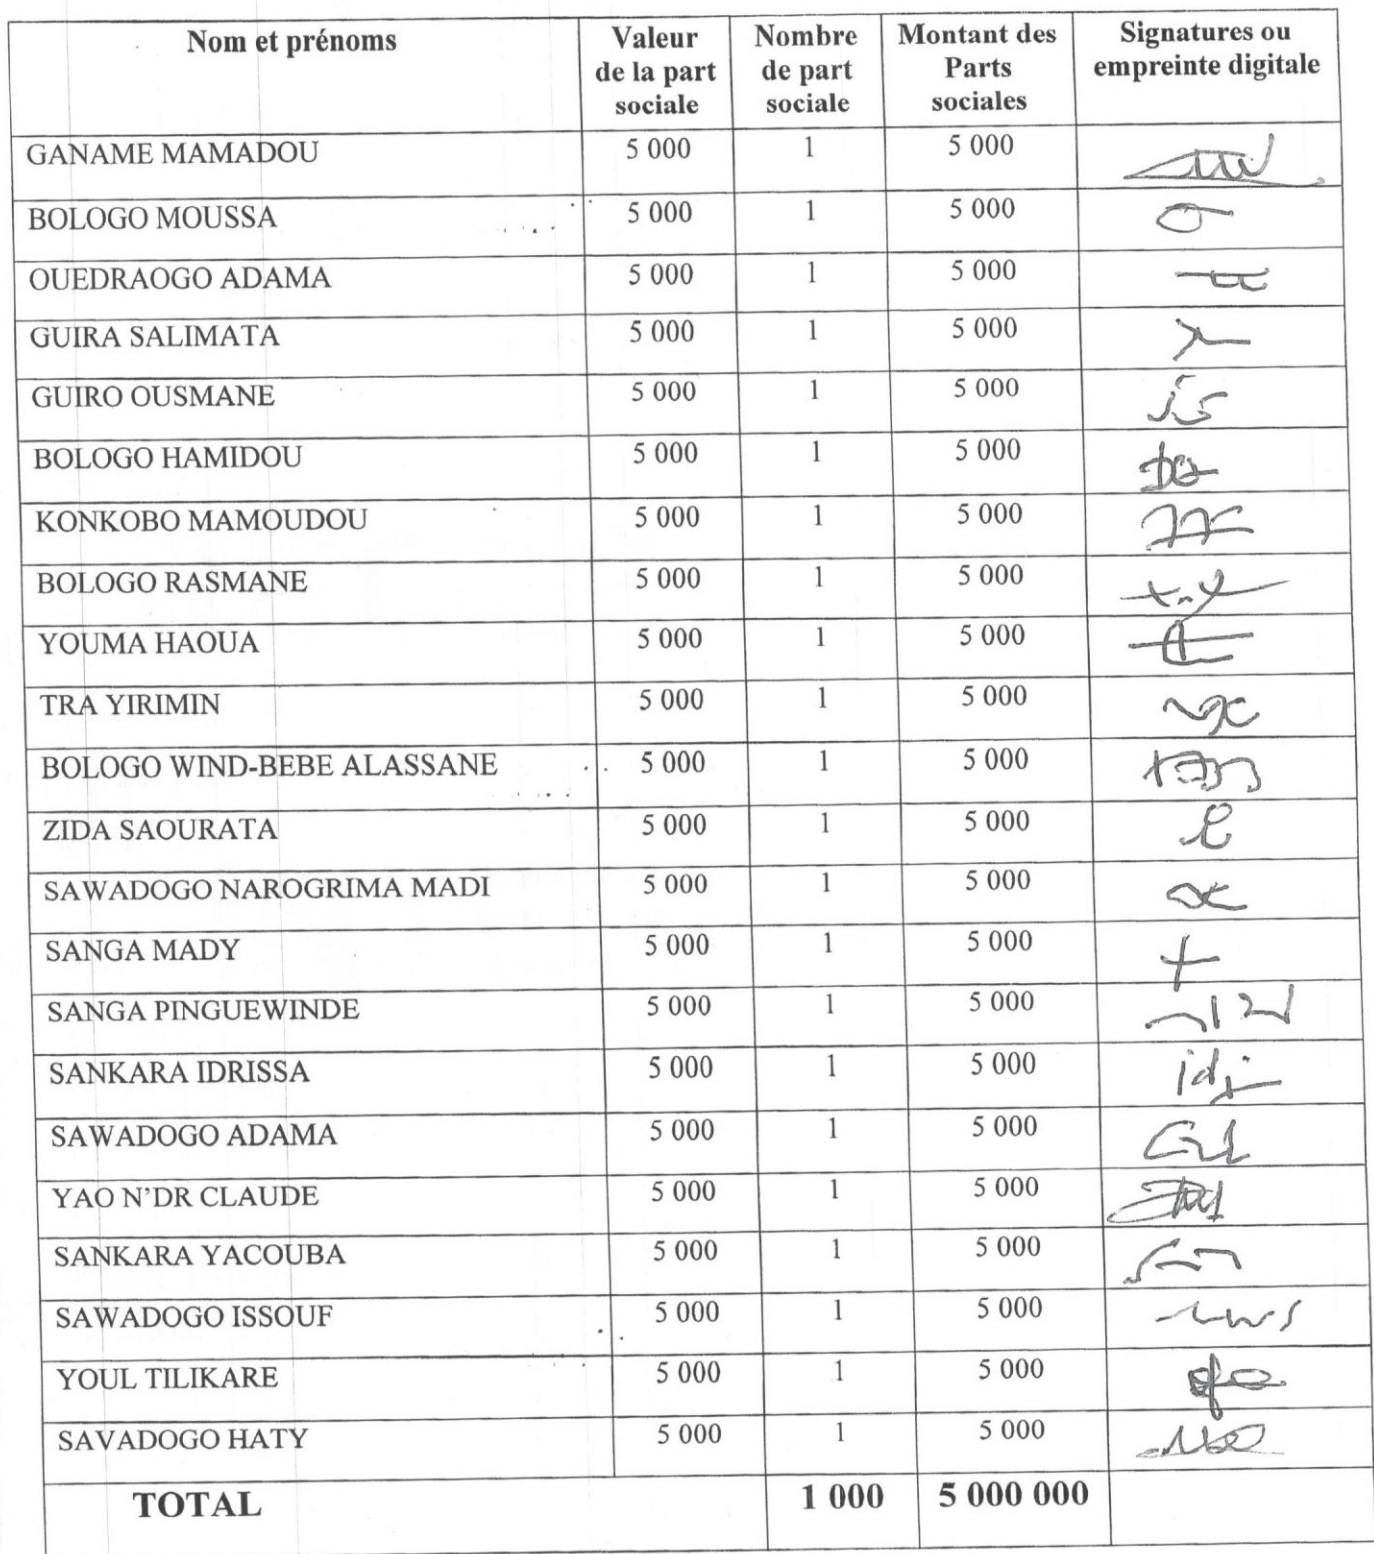 Nom et prénoms Valeur de la part sociale Nombre de part sociale Montant des Parts sociales Signatures ou empreinte digitale
GANAME MAMADOU 5 000 1 5 000
BOLOGO MOUSSA 5 000 1 5 000
OUEDRAOGO ADAMA 5 000 1 5 000
GUIRA SALIMATA 5 000 1 5 000
GUIRO OUSMANE 5 000 1 5 000
BOLOGO HAMIDOU 5 000 1 5 000
KONKOBO MAMOUDOU 5 000 1 5 000
BOLOGO RASMANE 5 000 1 5 000
YOUMA HAOUA 5 000 1 5 000
TRA YIRIMIN 5 000 1 5 000
BOLOGO WIND-BEBE ALASSANE 5 000 1 5 000
ZIDA SAOURATA 5 000 1 5 000
SAWADOGO NAROGRIMA MADI 5 000 1 5 000
SANGA MADY 5 000 1 5 000
SANGA PINGUEWINDE 5 000 1 5 000
SANKARA IDRISSA 5 000 1 5 000
SAWADOGO ADAMA 5 000 1 5 000
YAO N'DR CLAUDE 5 000 1 5 000
SANKARA YACOUBA 5 000 1 5 000
SAWADOGO ISSOUF 5 000 1 5 000
YOUL TILIKARE 5 000 1 5 000
SAVADOGO HATY 5 000 1 5 000
TOTAL 1 000 5 000 000